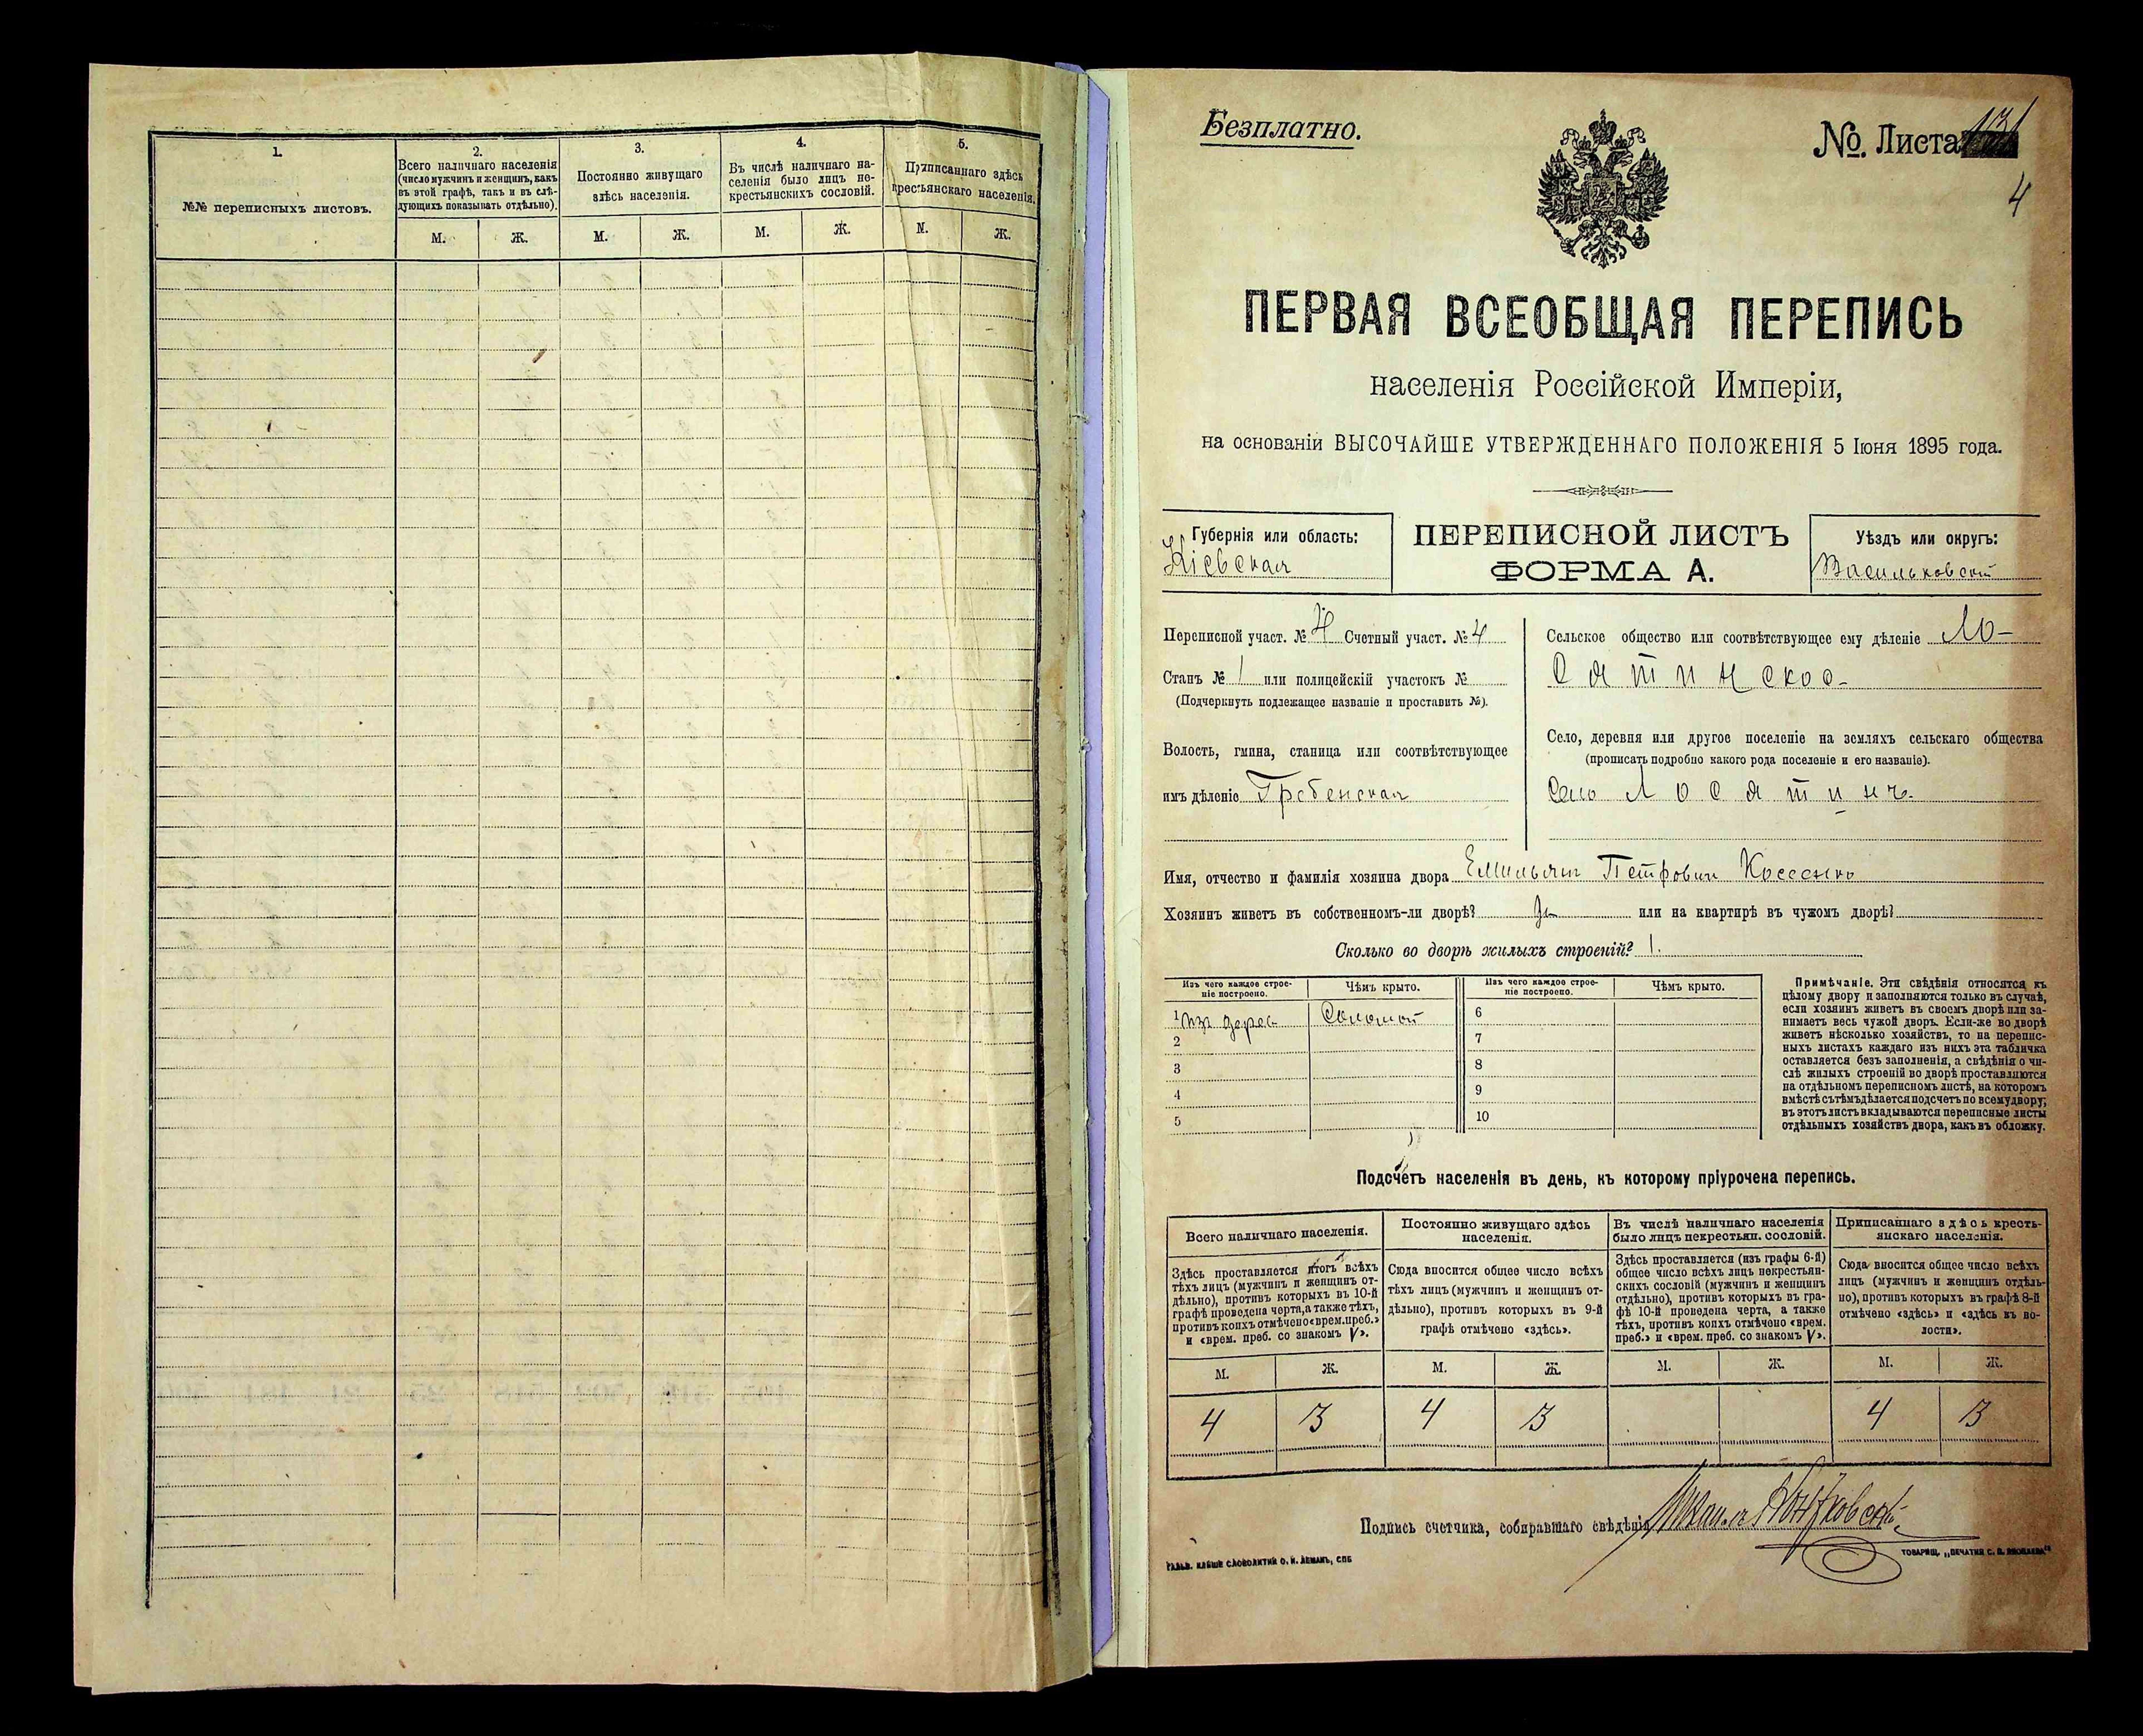 1.
№№ переписныхъ листовъ.
2.
Всего наличнаго населенія
(число мужчинъ и женщинъ, какъ
въ этой графѣ, такъ и въ слѣ-
дующихъ показывать отдѣльно).
М. Ж.
3.
Постоянно живущаго
здѣсь населенія.
М. Ж.
4.
Въ числѣ наличнаго на-
селенія было лицъ не-
крестьянскихъ сословій.
М. Ж.
5.
Приписаннаго здѣсь
крестьянскаго населенія.
М. Ж.
Безплатно.
№. Листа
4
ПЕРВАЯ ВСЕОБЩАЯ ПЕРЕПИСЬ
населенія Россійской Имперіи,
на основаніи ВЫСОЧАЙШЕ УТВЕРЖДЕННАГО ПОЛОЖЕНІЯ 5 Іюня 1895 года.
Губернія или область:
Кіевская
ПЕРЕПИСНОЙ ЛИСТЪ
ФОРМА А.
Уѣздъ или округъ:
Васильковскій
Переписной участ. № Счетный участ. № 4
Станъ № 1 или полицейскій участокъ №
(Подчеркнуть подлежащее названіе и проставить №).
Волость, гмина, станица или соотвѣтствующее
имъ дѣленіе Гребенская
Сельское общество или соотвѣтствующее ему дѣленіе Ло-
сятинское
Село, деревня или другое поселеніе на земляхъ сельскаго общества
(прописать подробно какого рода поселеніе и его названіе).
Село Лосятинъ
Имя, отчество и фамилія хозяина двора Емильян Петрович Косенко
Хозяинъ живетъ въ собственномъ-ли дворѣ? да или на квартирѣ въ чужомъ дворѣ?
Сколько во дворѣ жилыхъ строеній? 1.
Изъ чего каждое строе-
ніе построено.
Чѣмъ крыто.
Изъ чего каждое строе-
ніе построено.
Чѣмъ крыто.
1 из дерев Соломой 6
2 7
3 8
4 9
5 10
Примѣчаніе. Эти свѣдѣнія относятся къ
цѣлому двору и заполняются только въ случаѣ,
если хозяинъ живетъ въ своемъ дворѣ или за-
нимаетъ весь чужой дворъ. Если-же во дворѣ
живетъ нѣсколько хозяйствъ, то на перепис-
ныхъ листахъ каждаго изъ нихъ эта табличка
оставляется безъ заполненія, а свѣдѣнія о чи-
слѣ жилыхъ строеній во дворѣ проставляются
на отдѣльномъ переписномъ листѣ, на которомъ
вмѣстѣ съ тѣмъ дѣлается подсчетъ по всему двору;
въ этотъ листъ вкладываются переписные листы
отдѣльныхъ хозяйствъ двора, какъ въ обложку.
Подсчетъ населенія въ день, къ которому пріурочена перепись.
Всего наличнаго населенія.
Здѣсь проставляется итогъ всѣхъ
тѣхъ лицъ (мужчинъ и женщинъ от-
дѣльно), противъ которыхъ въ 10-й
графѣ проведена черта, а также тѣхъ,
противъ коихъ отмѣчено «врем. преб.»
и «врем. преб. со знакомъ V».
М. Ж.
4 3
Постоянно живущаго здѣсь
населенія.
Сюда вносится общее число всѣхъ
тѣхъ лицъ (мужчинъ и женщинъ от-
дѣльно), противъ которыхъ въ 9-й
графѣ отмѣчено «здѣсь».
М. Ж.
4 3
Въ числѣ наличнаго населенія
было лицъ некрестьян. сословій.
Здѣсь проставляется (изъ графы 6-й)
общее число всѣхъ лицъ некрестьян-
скихъ сословій (мужчинъ и женщинъ
отдѣльно), противъ которыхъ въ гра-
фѣ 10-й проведена черта, а также
тѣхъ, противъ коихъ отмѣчено «врем.
преб.» и «врем. преб. со знакомъ V».
М. Ж.
Приписаннаго здѣсь кресть-
янскаго населенія.
Сюда вносится общее число всѣхъ
лицъ (мужчинъ и женщинъ отдѣль-
но), противъ которыхъ въ графѣ 8-й
отмѣчено «здѣсь» и «здѣсь въ во-
лости».
М. Ж.
4 3
Подпись счетчика, собиравшаго свѣдѣнія
О. И. ЛЕМАНЪ, СПБ
ТОВАРИЩ. „ПЕЧАТНЯ С. П. ЯКОВЛЕВА"